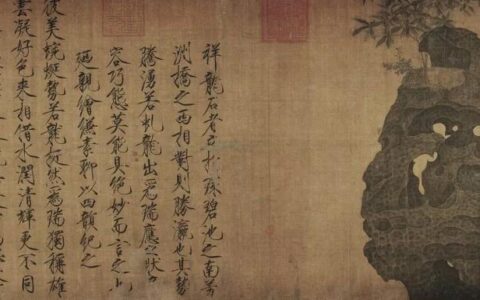 祥龍石者立於環碧池之南芳
洲橋之西相對則勝瀛也其勢
騰湧若虬龍出為瑞應之狀奇
容巧態莫能具絕妙而言之也
廼親繪縑素聊以四韻紀之
彼美蜿蜒勢若龍挺然為瑞獨稱雄
雲凝好色來相借水潤清輝更不同